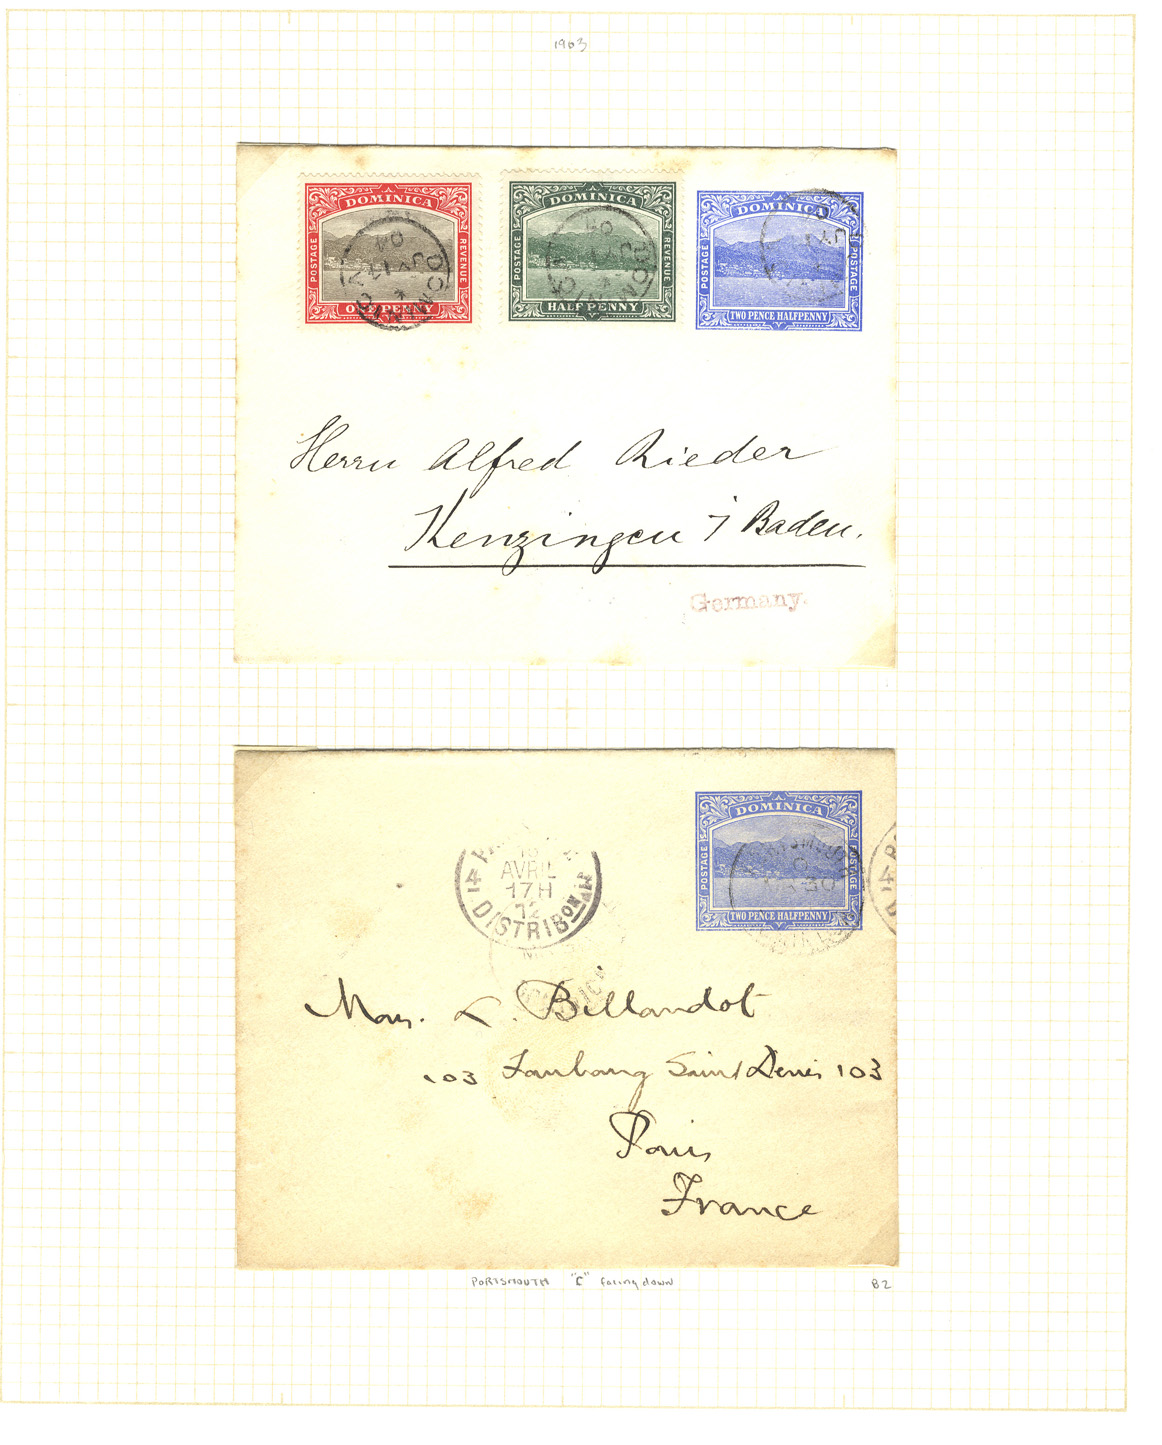 1903
DOMINICA
POSTAGE
REVENUE
ONE PENNY
DOMINICA
POSTAGE
REVENUE
HALFPENNY
DOMINICA
POSTAGE
POSTAGE
TWO PENCE HALFPENNY
Herrn Alfred Rieder
Kenzingen i Baden.
Germany.
DOMINICA
POSTAGE
POSTAGE
TWO PENCE HALFPENNY
AVRIL
17H
12
DISTRIBON
14
Mons. L. Billandot
103 Faubourg Saint Denis 103
Paris
France
PORTSMOUTH "C" facing down
B2